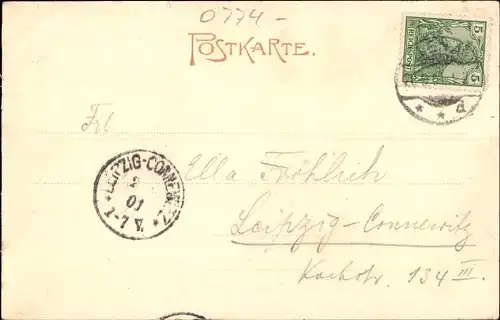 0774-
POSTKARTE.
5
REICHSPOST
5
d
Frl
Ella Fröhlich
LEIPZIG-CONNEWITZ
2
01
7-V.
Leipzig-Connewitz
134 III.